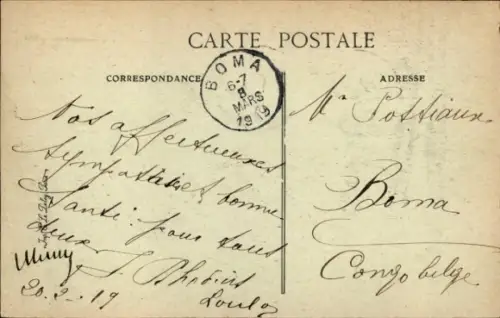 CARTE POSTALE
CORRESPONDANCE
ADRESSE
BOMA
6-7
8
MARS
1919
Nos affectueuses
sympathies et bonne
santé pour tous
deux
20-2-19
Mr Pottiaux
Boma
Congo belge